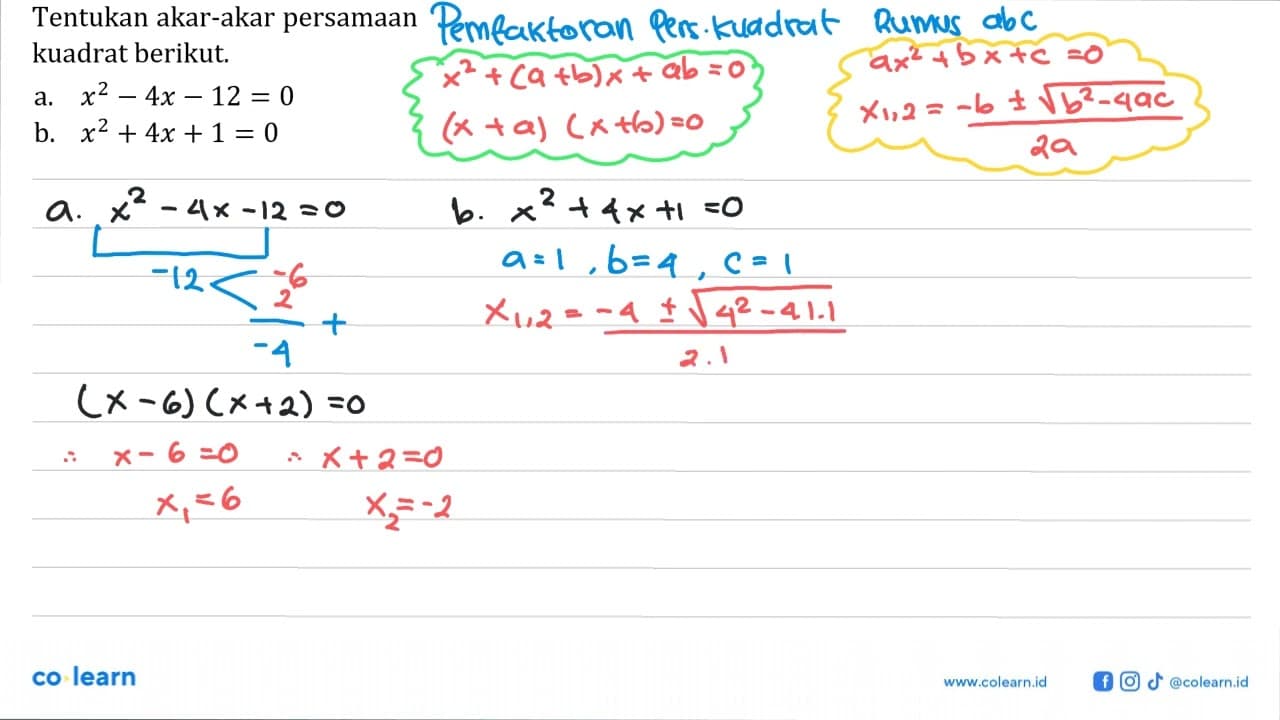 Tentukan akar-akar persamaan
kuadrat berikut.
a. x² − 4x − 12 = 0
b. x² + 4x + 1 = 0
Pemfaktoran Pers. kuadrat
x² + (a+b)x + ab = 0
(x + a) (x + b) = 0
Rumus abc
ax² + bx + c = 0
x₁,₂ = -b ± √b²-4ac
2a
a. x² - 4x - 12 = 0
-12 < -6
2
+
-4
(x - 6) (x + 2) = 0
∴ x - 6 = 0 ∴ x + 2 = 0
x₁ = 6 x₂ = -2
b. x² + 4x + 1 = 0
a = 1 , b = 4 , c = 1
x₁,₂ = -4 ± √4² - 41.1
2.1
co learn
www.colearn.id
@colearn.id